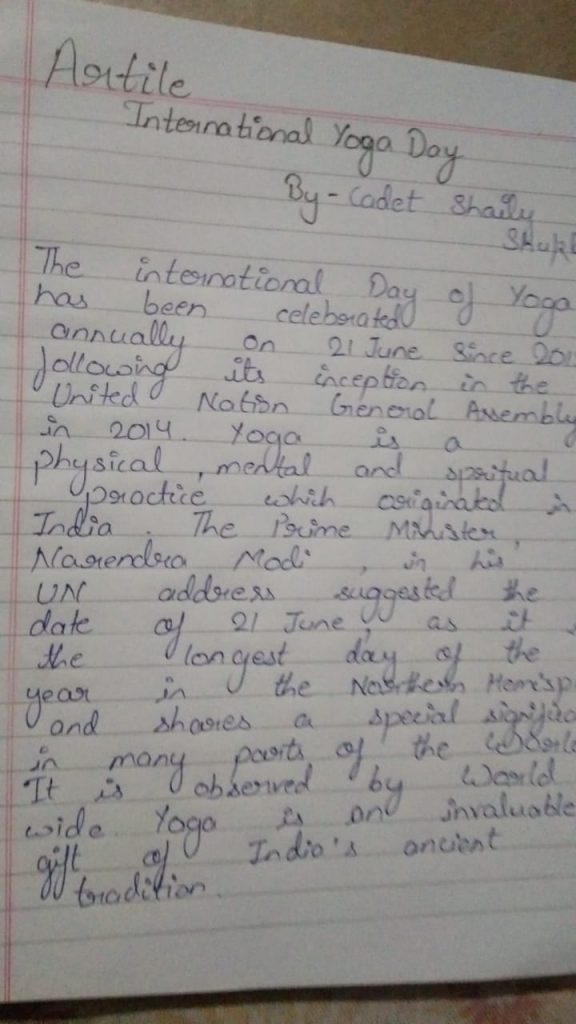 Artile
International Yoga Day
By - Cadet Shaily
The international Day of Yoga
has been celebrated
annually on 21 June Since
following its inception in the
United Nation General Assembly
in 2014. Yoga is a
physical, mental and spritual
practice which originated in
India. The Prime Minister,
Narendra Modi, in his
UN address suggested the
date of 21 June, as it
the longest day of the
year in the Northern
and shares a special
in many parts of the World
It is observed by World
wide. Yoga is an invaluable
gift of India's ancient
tradition.